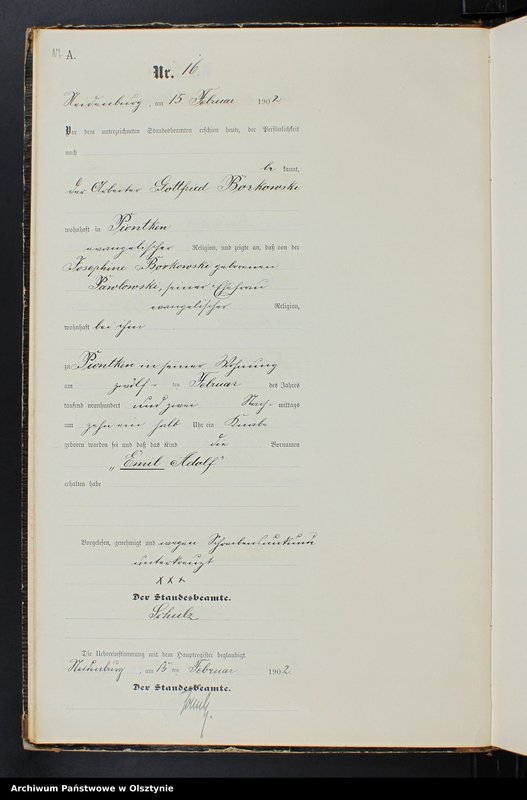 A.
Nr. 16.
Neidenburg, am 15 Februar 1902
Vor dem unterzeichneten Standesbeamten erschien heute, der Persönlichkeit
nach
be kannt,
der Arbeiter Gottfried Borkowski
wohnhaft in Piontken
evangelischer Religion, und zeigte an, daß von der
Josephine Borkowski geborenen
Pawlowski, seiner Ehefrau
evangelischer Religion,
wohnhaft bei ihm
zu Piontken in seiner Wohnung
am zwölf- ten Februar des Jahres
tausend neunhundert und zwei Nach- mittags
um zehn ein halb Uhr ein Knabe
geboren worden sei und daß das Kind die Vornamen
„Emil Adolf"
erhalten habe
Vorgelesen, genehmigt und wegen Schreibensunkunde
unterkreuzt
X X +
Der Standesbeamte.
Schulz
Die Uebereinstimmung mit dem Hauptregister beglaubigt.
Neidenburg, am 15 ten Februar 1902.
Der Standesbeamte.
Schulz.
Archiwum Państwowe w Olsztynie